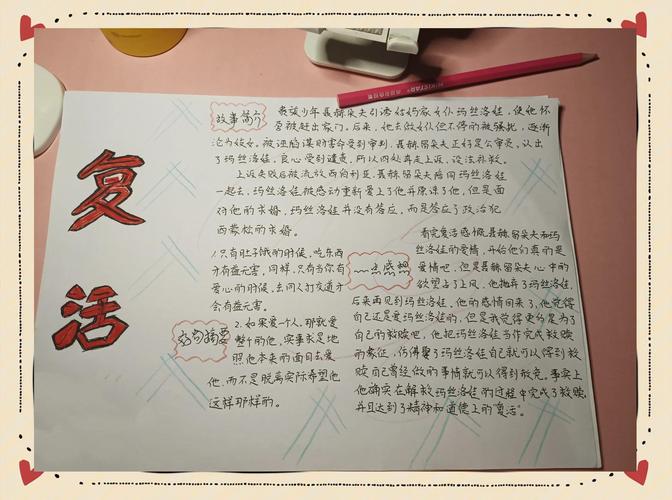 复
活
故事简介
贵族少年聂赫留朵夫引诱姑妈家女仆玛丝洛娃，使她怀
孕被赶出家门。后来，她去做女仆但不停的被骚扰，逐渐
沦为妓女。被诬陷谋财害命受到审判，聂赫留朵夫正好是公审员，认出
了玛丝洛娃，良心受到谴责，所以四处奔走上诉，设法补救。
上诉失败后被流放西伯利亚，聂赫留朵夫陪同玛丝洛娃
一起去，玛丝洛娃被感动重新爱上了他并原谅了他，但是面
对他的求婚，玛丝洛娃并没有答应，而是答应了政治犯
西蒙松的求婚。
1.只有肚子饿的时候，吃东西
才有益无害，同样，只有当你有
爱心的时候，去同人打交道才
会有益无害。
好句摘要
2.如果爱一个人，那就爱
整个的他，实事求是地
照他本来的面目去爱
他，而不是脱离实际希望他
这样那样的。
一点感想
看完复活感慨聂赫留朵夫和玛
丝洛娃的爱情，开始他们真的是
爱情吧，但是聂赫留朵夫心中的
欲望占了上风，他抛弃了玛丝洛娃，
后来再见到玛丝洛娃，他的感情回来了，他觉得
自己还是爱玛丝洛娃的，但是我觉得更多是为了
自己的救赎吧，他把玛丝洛娃当作完成救赎
的象征，仿佛娶了玛丝洛娃自己就可以得到救
赎自己曾经做的事情就可以得到赦免。事实上
他确实在解救玛丝洛娃的过程中完成了救赎，
并且达到了精神和道德上的“复活”。